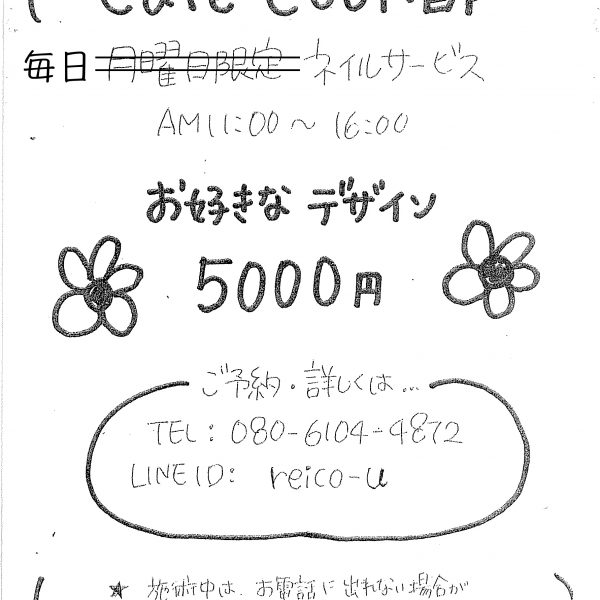 毎日 月曜日限定 ネイルサービス
AM11:00〜16:00
お好きな デザイン
5000円
ご予約・詳しくは…
TEL: 080-6104-4872
LINE ID: reico-u
★ 施術中は、お電話に出れない場合が